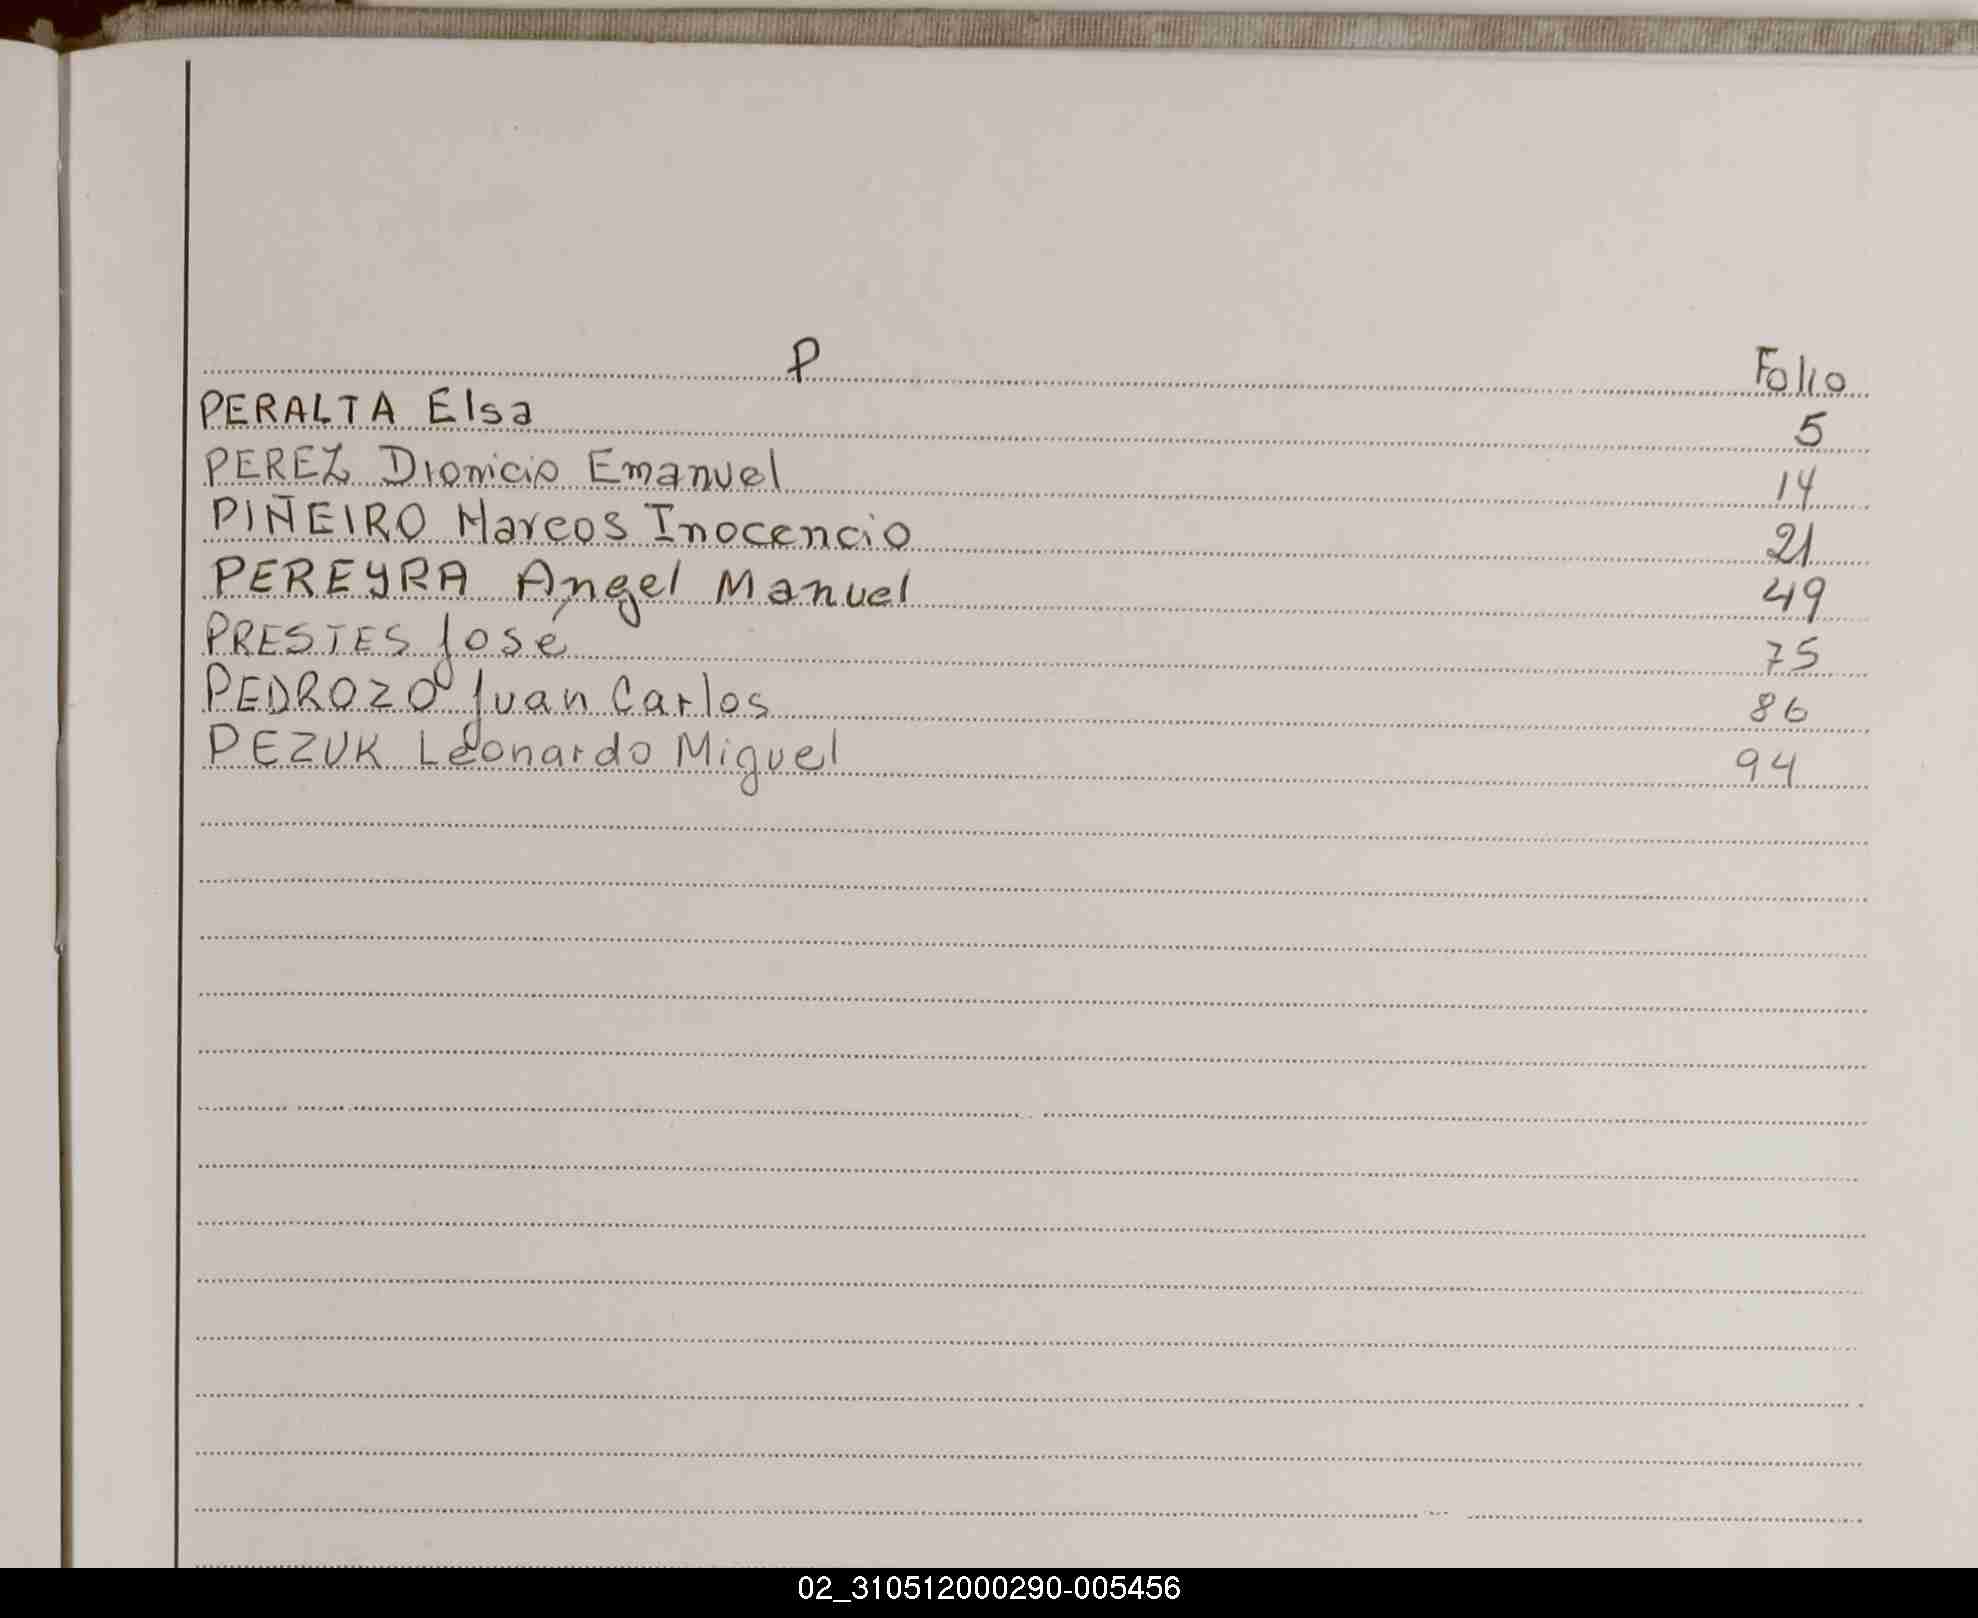 P Folio
PERALTA Elsa 5
PEREZ Dionicio Emanuel 14
PIÑEIRO Marcos Inocencio 21
PEREYRA Angel Manuel 49
PRESTES José 75
PEDROZO Juan Carlos 86
PEZUK Leonardo Miguel 94
02_310512000290-005456